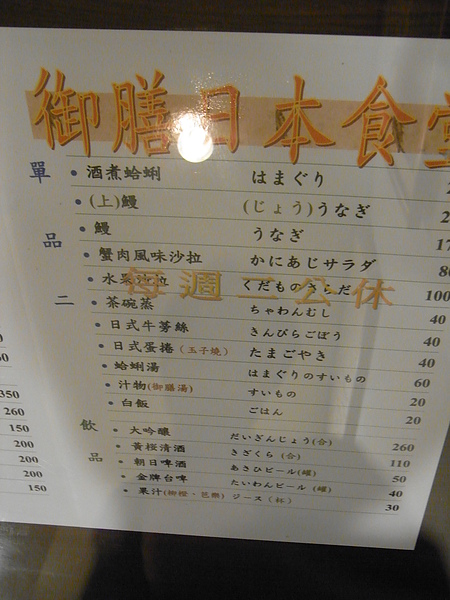 御膳日本食堂
單品二
• 酒煮蛤蜊 はまぐり 2
• (上)鰻 (じょう)うなぎ 2
• 鰻 うなぎ 17
• 蟹肉風味沙拉 かにあじサラダ 80
• 水果沙拉 くだものさらだ 100
每週二公休
• 茶碗蒸 ちゃわんむし 40
• 日式牛蒡絲 きんぴらごぼう 40
• 日式蛋捲(玉子燒) たまごやき 40
• 蛤蜊湯 はまぐりのすいもの 60
• 汁物(御膳湯) すいもの 20
• 白飯 ごはん 20
飲品
• 大吟釀 だいぎんじょう(合) 260
• 黃桜清酒 きざくら(合) 110
• 朝日啤酒 あさひビール(罐) 50
• 金牌台啤 たいわんビール(罐) 40
• 果汁(柳橙、芭樂) ジース(杯) 30
350
260
150
200
200
200
150